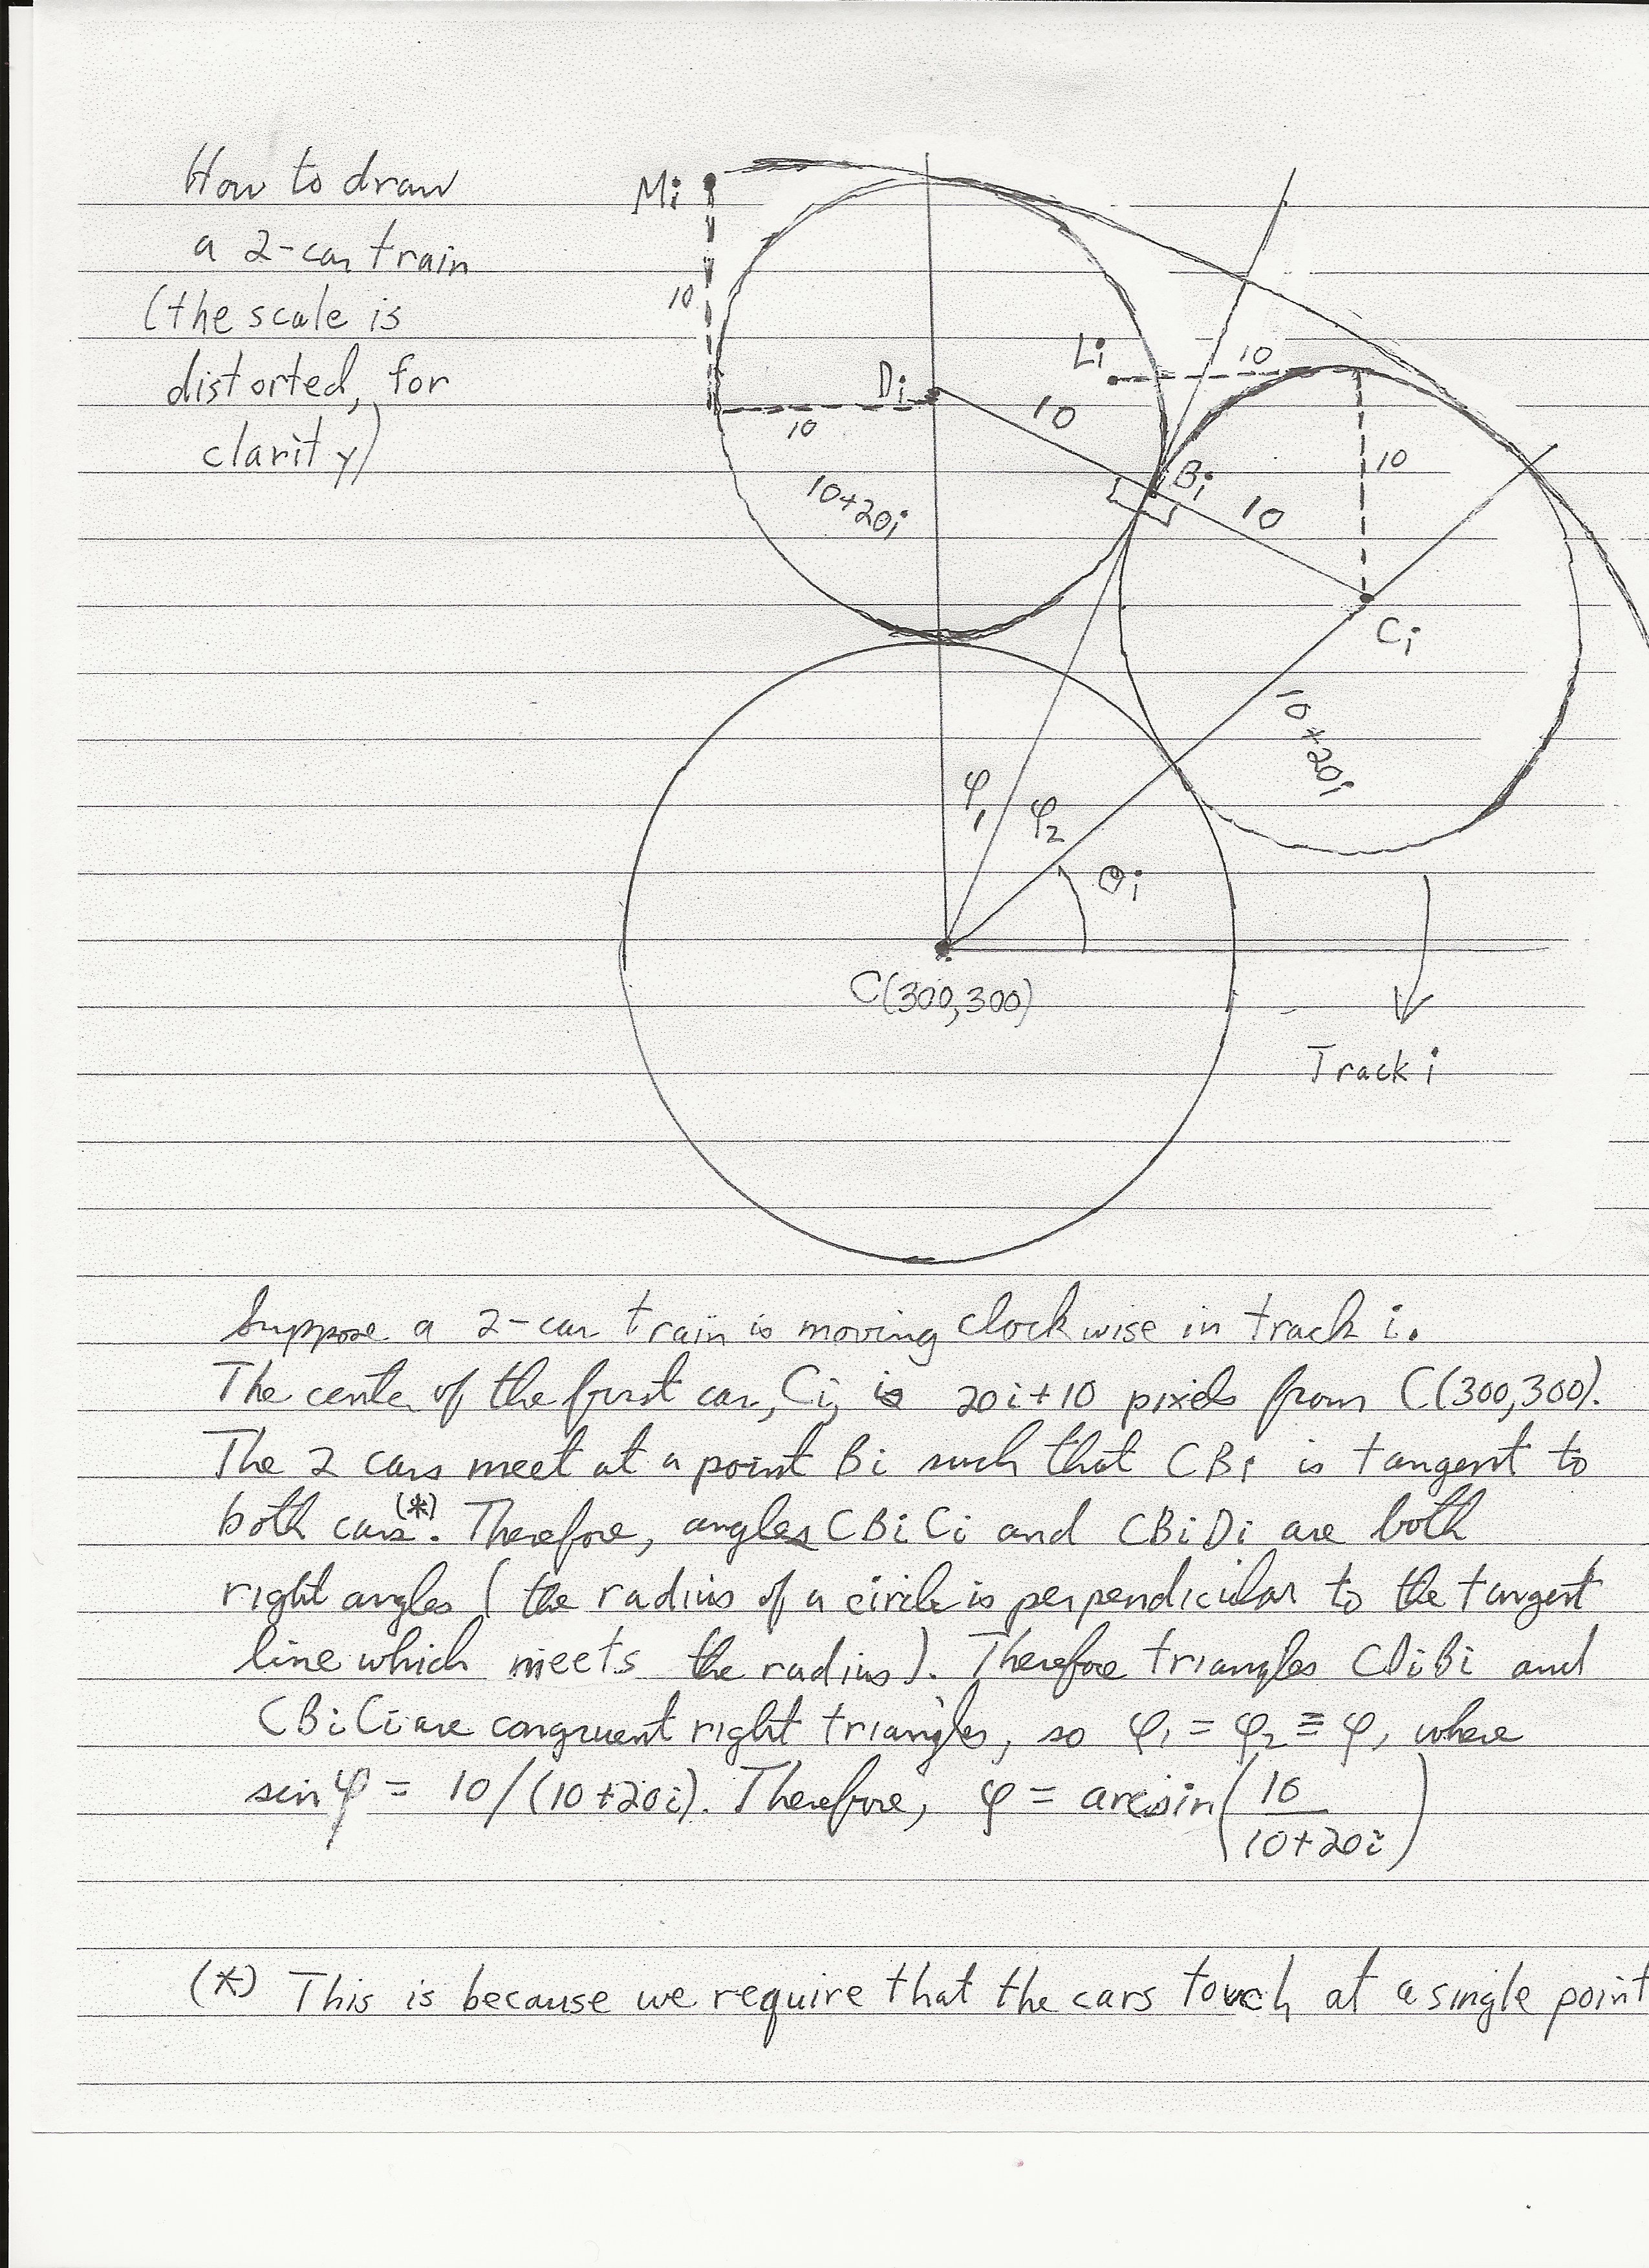 How to draw
a 2-car train
(the scale is
distorted, for
clarity)
Mi
10
Di
10
Li
10
10
Bi
10
10
10+20i
Ci
10+20i
φ1
φ2
θi
C(300,300)
Track i
Suppose a 2-car train is moving clockwise in track i.
The center of the first car, Ci, is 20i+10 pixels from C(300,300).
The 2 cars meet at a point Bi such that CBi is tangent to
both cars(*). Therefore, angles CBiCi and CBiDi are both
right angles (the radius of a circle is perpendicular to the tangent
line which meets the radius). Therefore triangles CDiBi and
CBiCi are congruent right triangles, so φ1 = φ2 ≡ φ, where
sin φ = 10/(10+20i). Therefore, φ = arcsin(10/10+20i)
(*) This is because we require that the cars touch at a single point